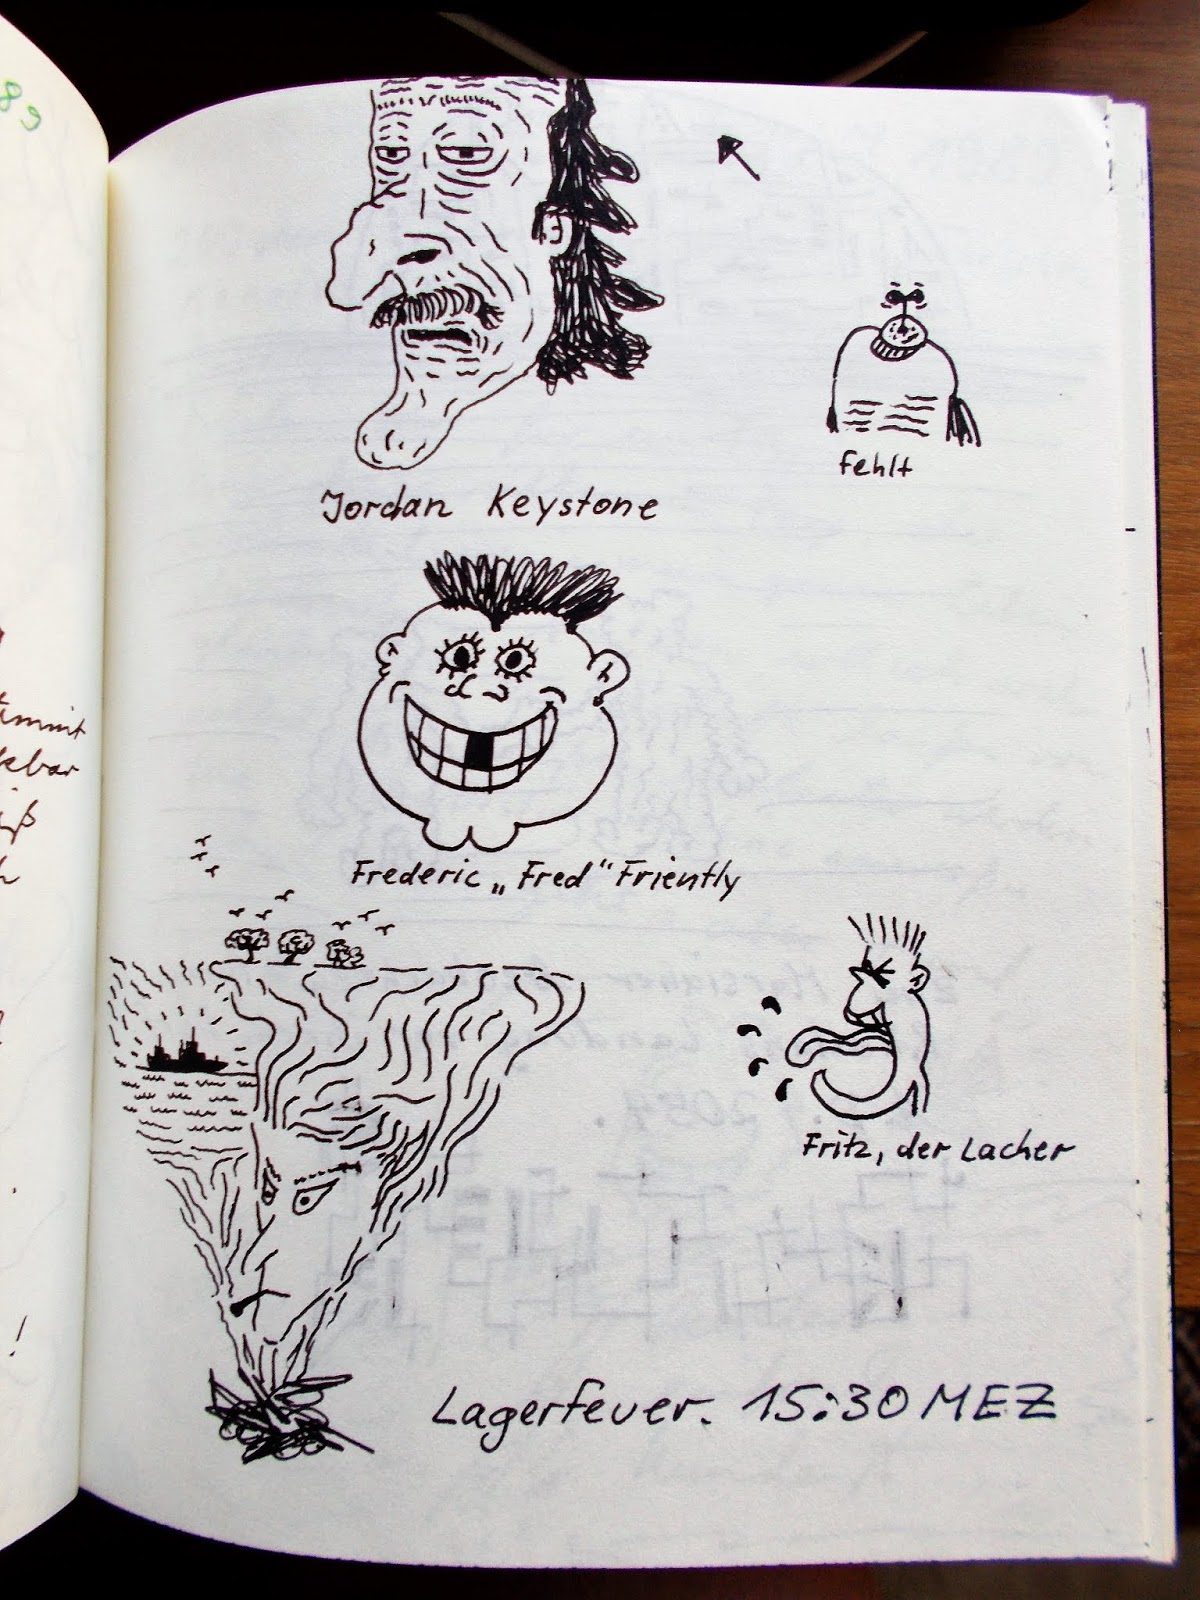 89
Jordan Keystone
fehlt
Frederic „Fred“ Friently
Fritz, der Lacher
Lagerfeuer. 15:30 MEZ
!